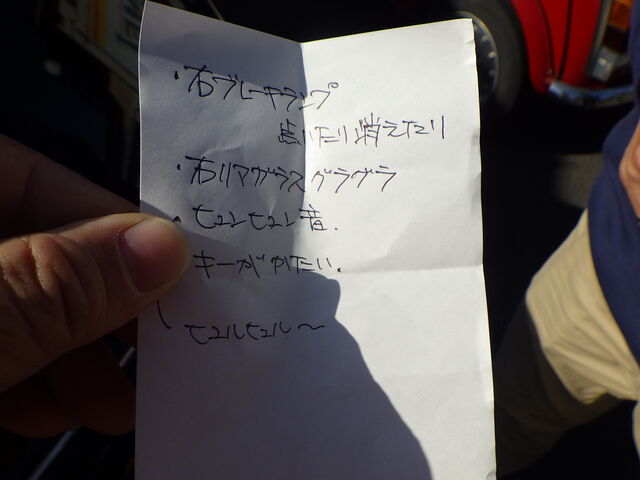 ・右ブレーキランプ
点いたり消えたり
・右リアガラスグラグラ
・ヒュンヒュン音.
キーがかたい.
ヒュルヒュル〜